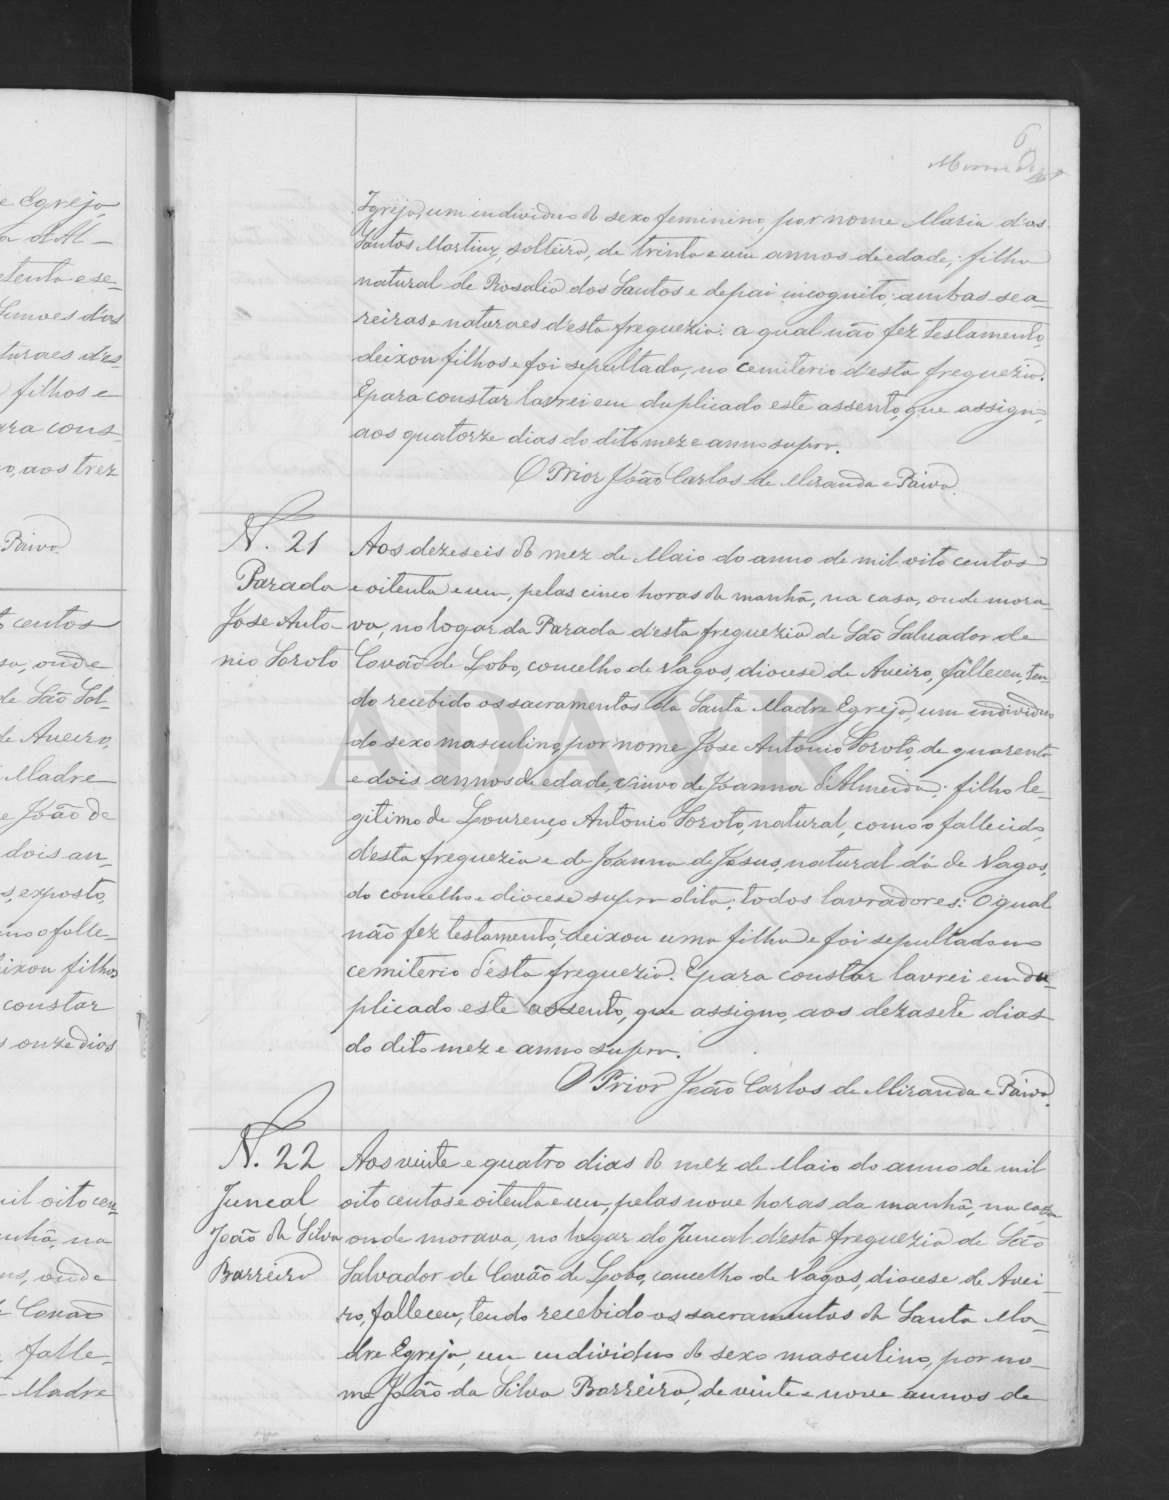 6
Igreja, um individuo do sexo feminino, por nome Maria d'os
Santos Martins, solteira, de trinta e um annos de edade; filha
natural de Rosalia dos Santos e de pai incognito; ambas sea-
reiras e naturaes d'esta freguezia: a qual não fez testamento,
deixou filhos e foi sepultada, no cemiterio d'esta freguezia.
E para constar lavrei em duplicado este assento, que assigno,
aos quatorze dias do dito mez e anno supra.
O Prior João Carlos de Miranda e Paiva.
N. 21
Parada
José Anto-
nio Soroto
Aos dezeseis do mez de Maio do anno de mil oito centos
e oitenta e um, pelas cinco horas da manhã, na casa, onde mora-
va, no logar da Parada d'esta freguezia de São Salvador de
Covão de Lobo, concelho de Vagos, diocese de Aveiro, falleceu, ten-
do recebido os sacramentos da Santa Madre Egreja, um individuo
do sexo masculino, por nome José Antonio Soroto, de quarenta
e dois annos de edade, viuvo de Joanna d'Almeida; filho le-
gitimo de Lourenço Antonio Soroto, natural, como o fallecido,
d'esta freguezia e de Joanna de Jesus, natural da de Vagos,
do concelho e diocese supra dita; todos lavradores: O qual
não fez testamento, deixou uma filha e foi sepultado no
cemiterio d'esta freguezia. E para constar lavrei em du-
plicado este assento, que assigno, aos dezasete dias
do dito mez e anno supra.
O Prior João Carlos de Miranda e Paiva.
N. 22
Juncal
João da Silva
Barreira
Aos vinte e quatro dias do mez de Maio do anno de mil
oito centos e oitenta e um, pelas nove horas da manhã, na caza,
onde morava, no logar do Juncal d'esta freguezia de São
Salvador de Covão de Lobo, concelho de Vagos, diocese de Avei-
ro, falleceu, tendo recebido os sacramentos da Santa Ma-
dre Egreja, um individuo do sexo masculino, por no-
me João da Silva Barreira, de vinte e nove annos de
e Egreja,
tenta e se-
Simoes d'os
turaes d'es-
filhos e
ara cons-
o, aos trez
Paiva
centos
sa, onde
de São Sal-
de Aveiro,
Madre
e João de
dois an-
s, exposto,
mo o falle-
eixou filhos
constar
s onze dias
mil oito cen-
anhã, na
onde
Covão
falle-
Madre
ADAVR